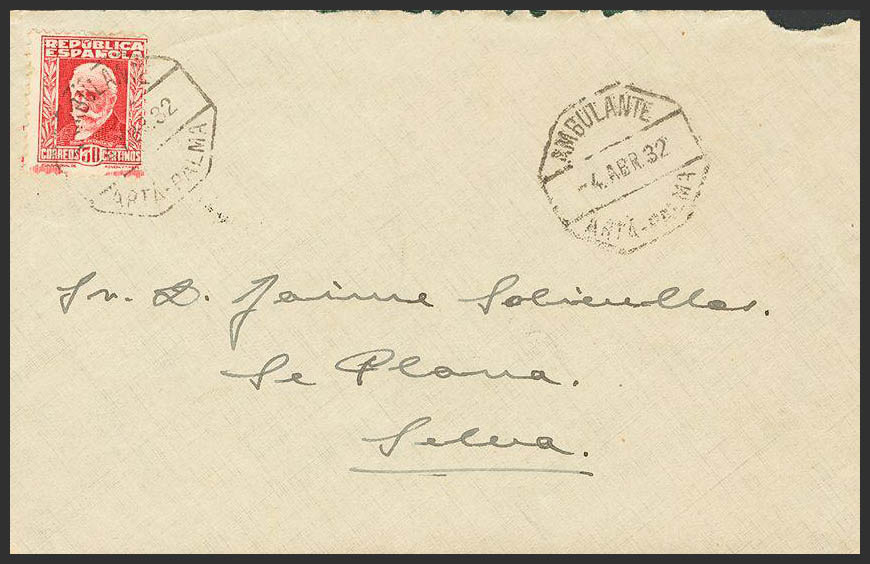 REPÚBLICA
ESPAÑOLA
CORREOS 30 CENTIMOS
32
ARTÁ-PALMA
AMBULANTE
-4.ABR.32
ARTÁ-PALMA
Sr. D. Jaime
Sa Plana.
Selva.